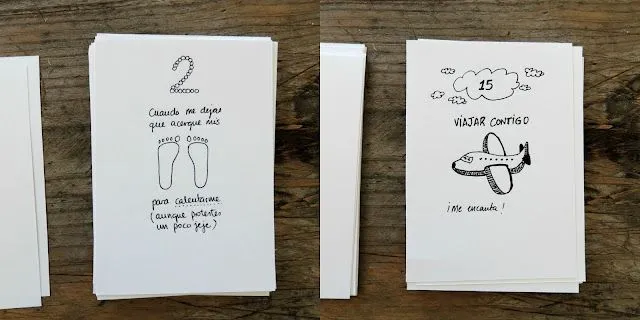 2
Cuando me dejas
que acerque mis
para calentarme
(aunque protestes
un poco jeje)
15
VIAJAR CONTIGO
¡Me encanta!